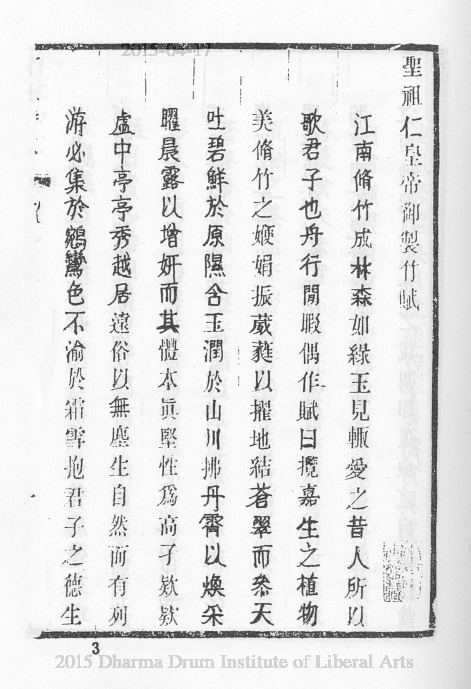 2015-04-17
聖祖仁皇帝御製竹賦
江南脩竹成林森如綠玉見輒愛之昔人所以
歌君子也舟行閒暇偶作賦曰攬嘉生之植物
美脩竹之嬋娟振葳蕤以擢地結蒼翠而叅天
吐碧鮮於原隰含玉潤於山川拂丹霄以煥采
曜晨露以增妍而其體本眞堅性爲高子欵欵
盧中亭亭秀越居遠俗以無塵生自然而有列
游必集於鵷鸞色不渝於霜雪抱君子之德生
3
2015 Dharma Drum Institute of Liberal Arts